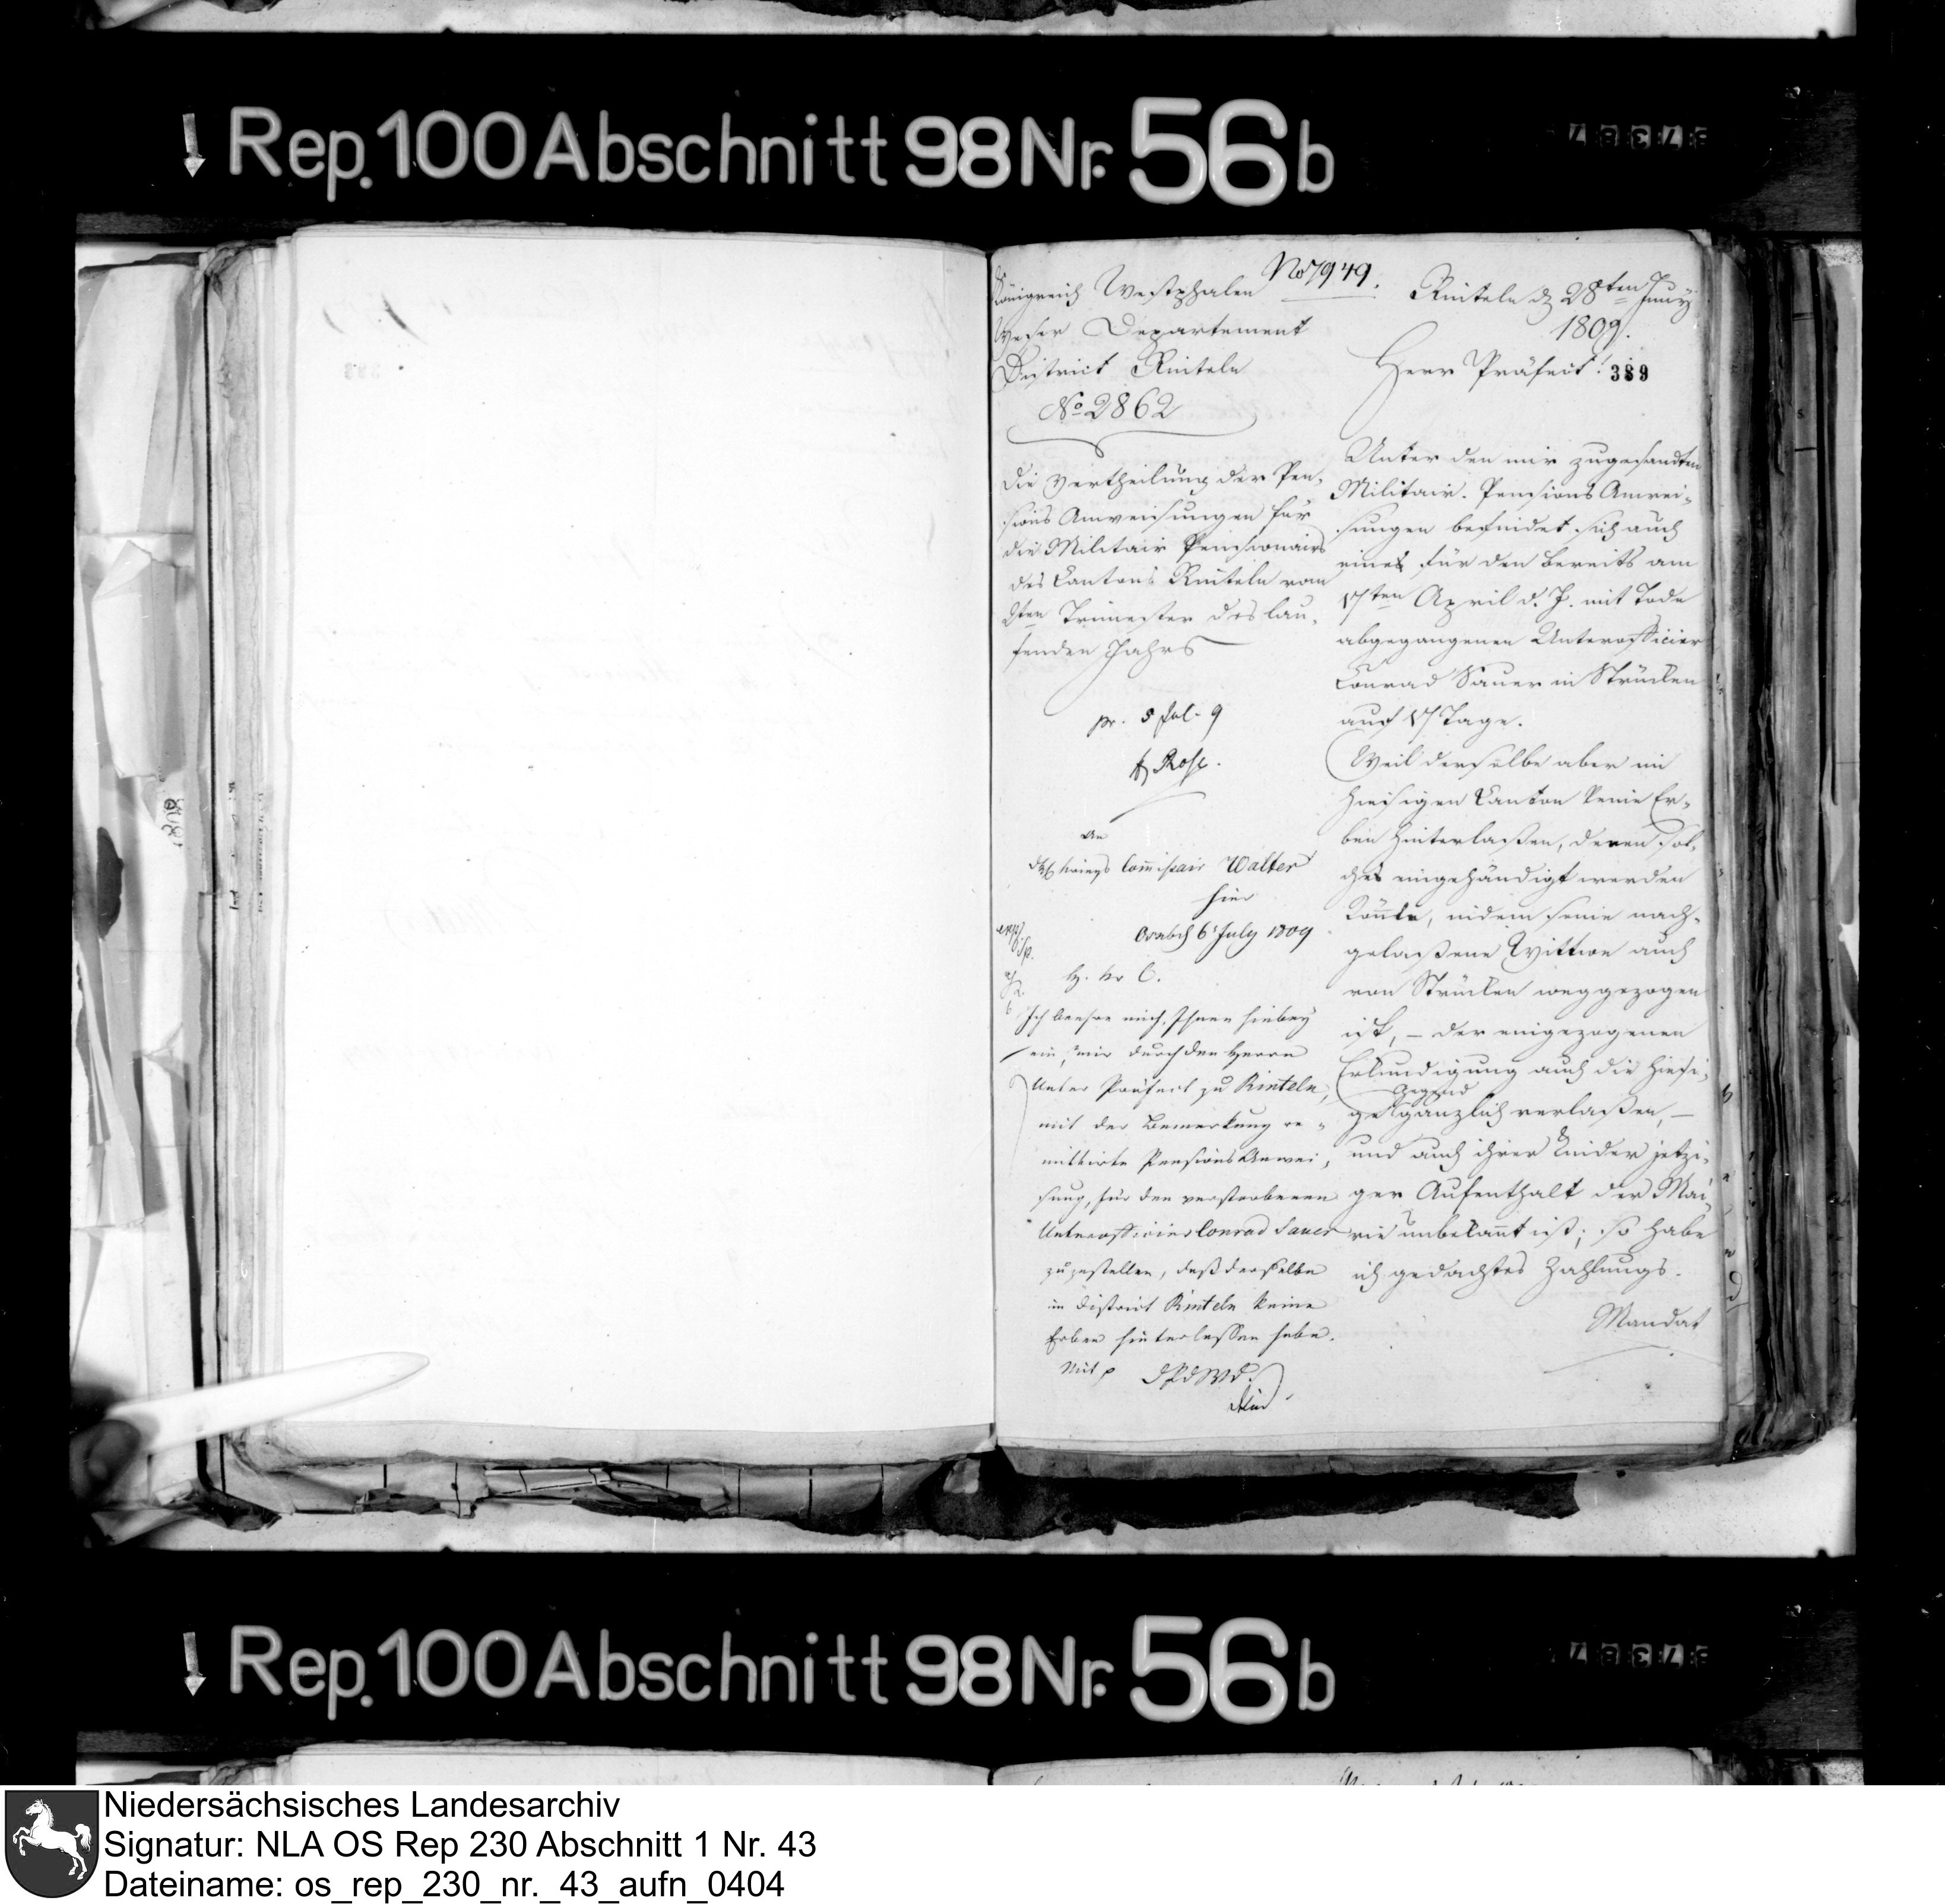 Rep. 100 Abschnitt 98 Nr. 56 b
No 7949.
Königreich Westphalen
Weser Departement
District Rinteln
No 2862
Die Vertheilung der Pen-
sions Anweisungen für
die Militair Pensionairs
des Cantons Rinteln vom
2ten Trimester des lau-
fenden Jahrs
pr. 5 Jul. 9
Rose.
An
Kriegs Commissair Walter
hier
Osnabr. 6t July 1809
H. Kr C.
Ich beehre mich, Ihnen hiebey
ein, mir durch den Herrn
Unter Präfect zu Rinteln,
mit der Bemerkung re-
mittirte Pensions Anwei-
sung, für den verstorbenen
Unterofficier Conrad Sauer
zuzustellen, daß derselbe
im District Rinteln keine
Erben hinterlassen habe.
Mit
D P d W D.
Rinteln d 28ten Juny
1809.
Herr Präfect!
389
Unter den mir zugesandten
Militair-Pensions Anwei-
sungen befindet sich auch
eines für den bereits am
17ten April d. J. mit Tode
abgegangenen Unterofficier
Conrad Sauer in Strücken
auf 17 Tage.
Weil derselbe aber im
hiesigen Canton keine Er-
ben hinterlaßen, denen sol-
ches eingehändigt werden
könnte, indem seine nach-
gelaßene Wittwe auch
von Strücken weggezogen
ist, – der eingezogenen
Erkundigung auch die hiesi-
ge Gegend gänzlich verlaßen, –
und auch ihrer Kinder jetzi-
ger Aufenthalt der Mai-
rie unbekannt ist; so habe
ich gedachtes Zahlungs-
Mandat
Rep. 100 Abschnitt 98 Nr. 56 b
Niedersächsisches Landesarchiv
Signatur: NLA OS Rep 230 Abschnitt 1 Nr. 43
Dateiname: os_rep_230_nr._43_aufn_0404